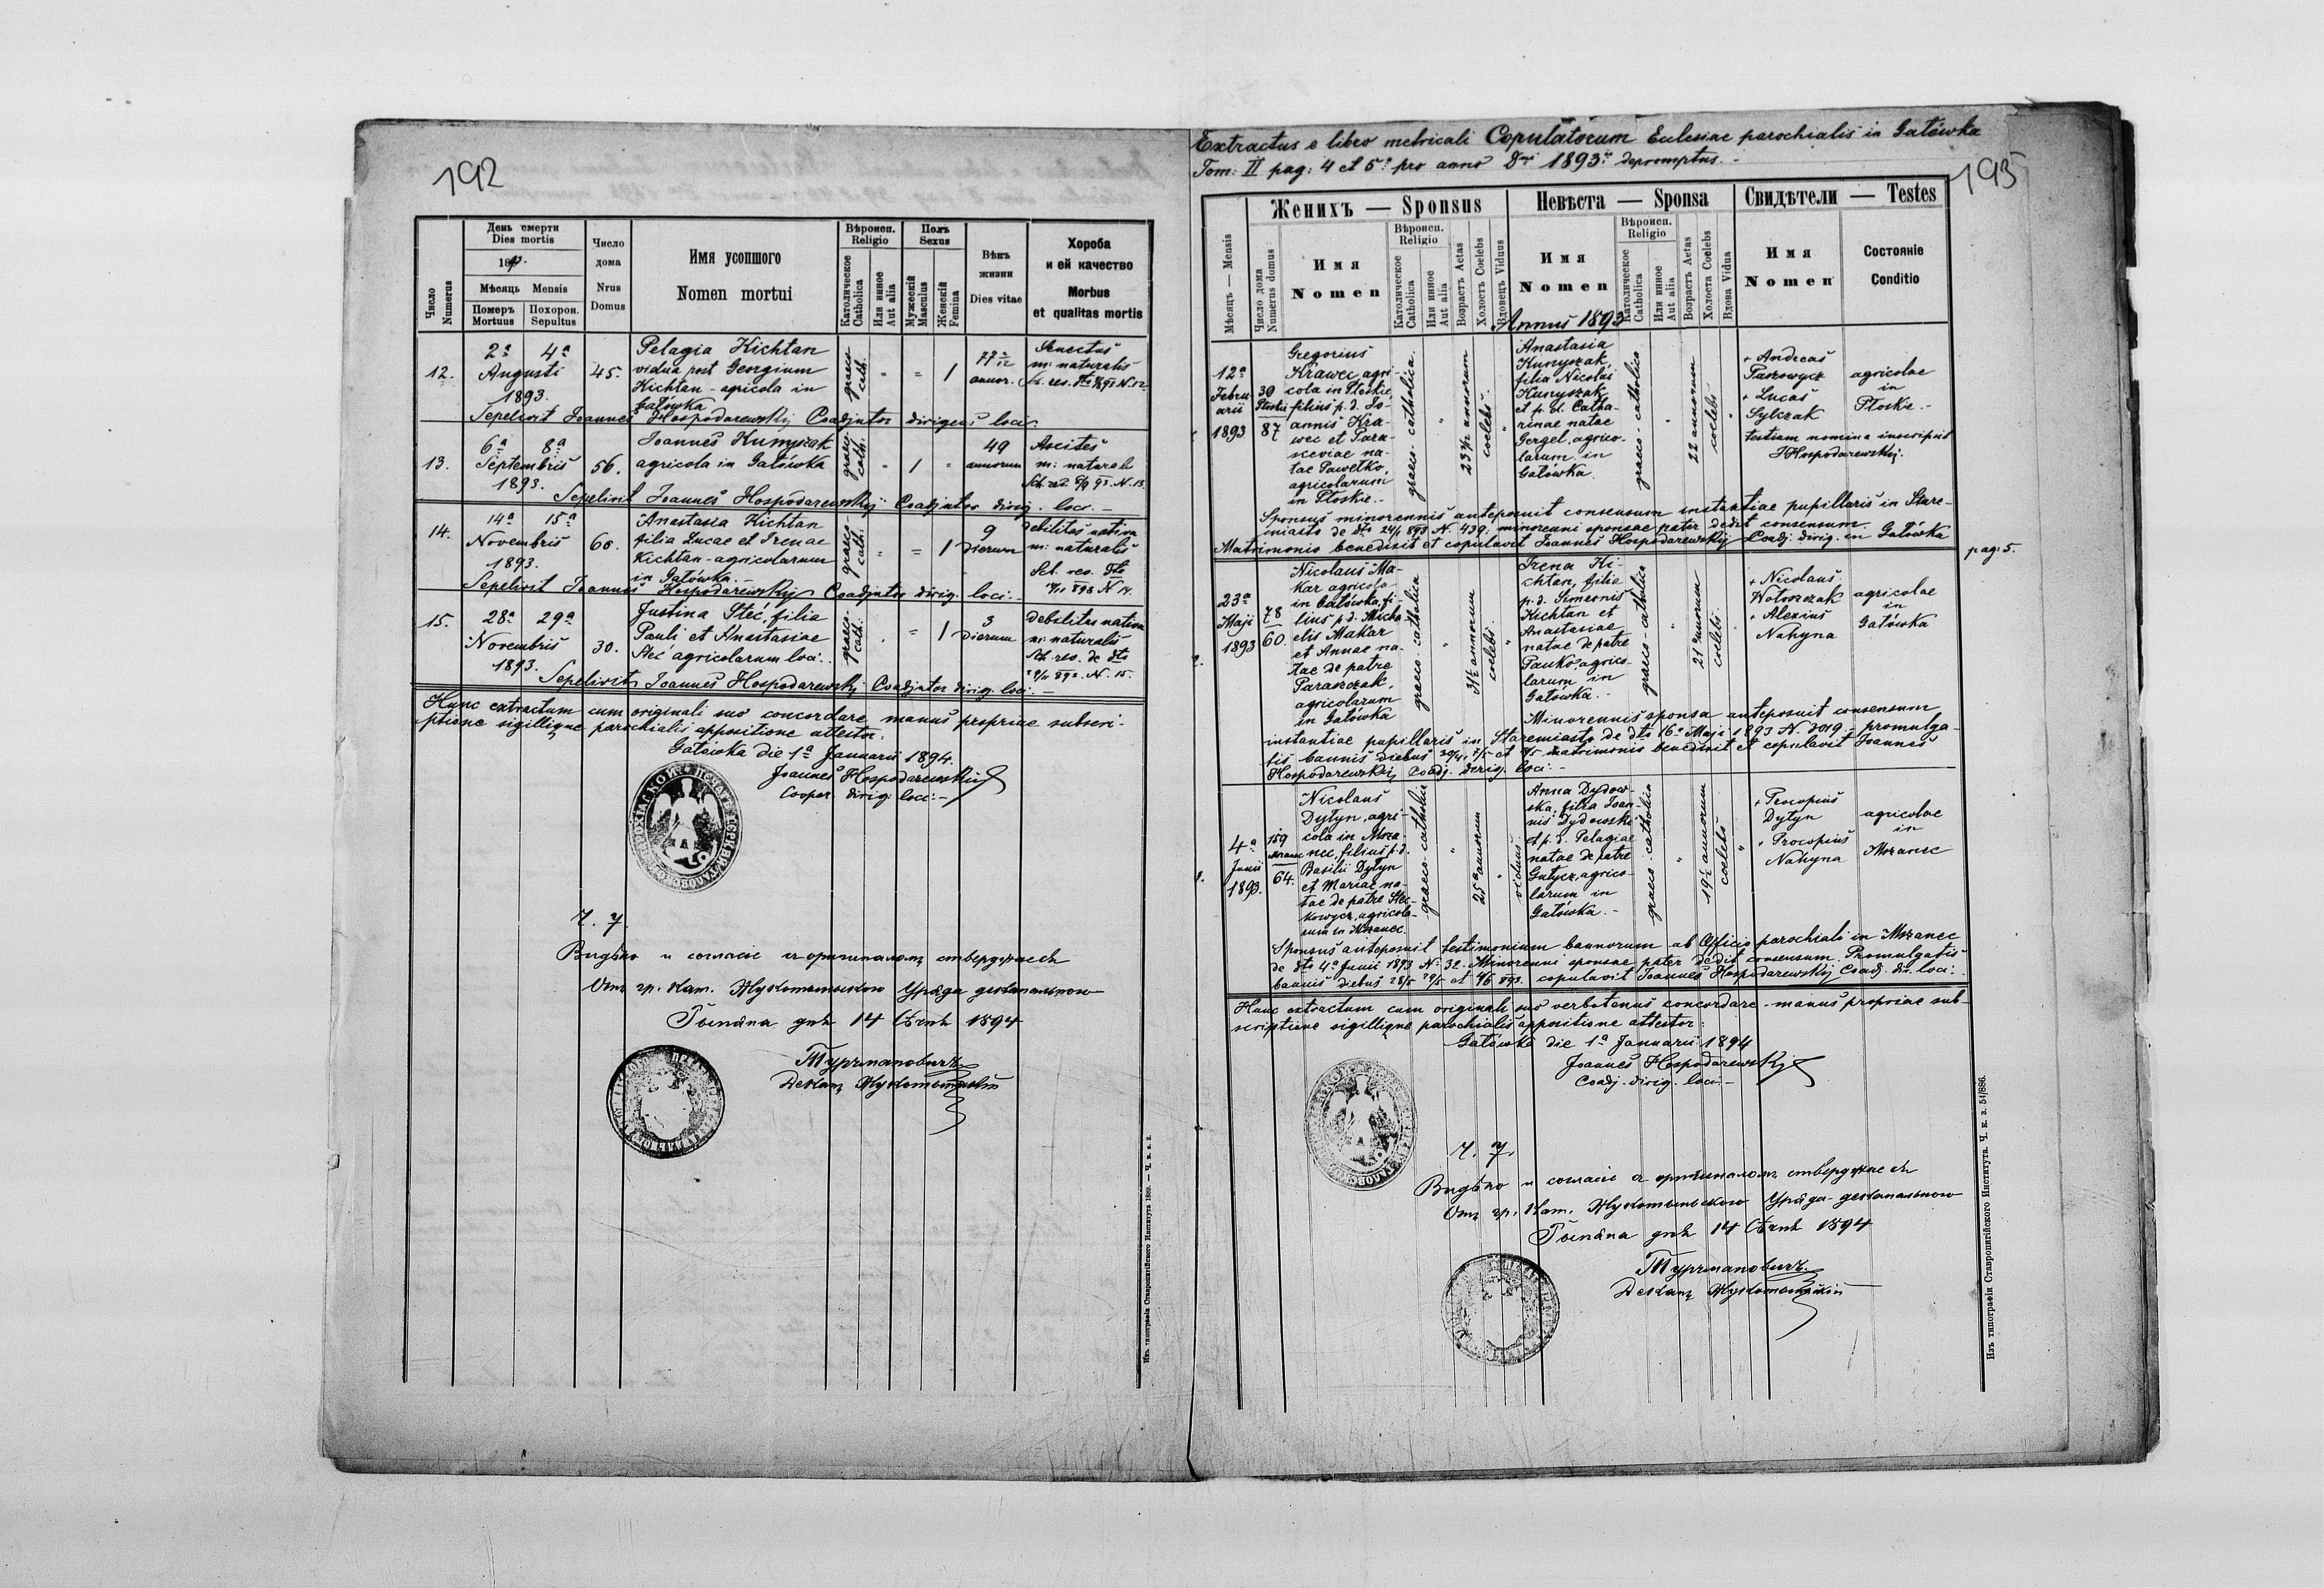 192
День смерти
Dies mortis
Мѣсяць Mensis
Померъ Mortuus
Похорон. Sepultus
Число Numerus
Число дома
Nrus Domus
Имя усопшого
Nomen mortui
Вѣроисп. Religio
Католическое Catholica
Или инное Aut alia
Полъ Sexus
Мужескій Masculus
Женскій Femina
Вѣкъ жизни
Dies vitae
Хороба и ей качество
Morbus et qualitas mortis
12.
2a 4a
Augusti
1893.
45.
Pelagia Kichtan
vidua post Georgium
Kichtan - agricola in
Gałówka
graeco-cath.
1
annor.
Senectus
m: naturalis
Sepelivit Joannes Hospodarewskij Coadjutor dirigens loci.
13.
6a 8a
Septembris
1893.
56.
Joannes Kunyszak
agricola in Gałówka
graeco-cath.
1
49
annorum
Ascites
m: naturalis
Sepelivit Joannes Hospodarewskij Coadjutor dirig. loci. -
14.
14a 15a
Novembris
1893.
Anastasia Kichtan
filia Lucae et Irenae
Kichtan - agricolarum
in Gałówka. -
graeco-cath.
1
9
Dierum
debilitas nativa
m: naturalis
Sepelivit Joannes Hospodarewskij Coadjutor dirig. loci. -
15.
28a 29a
Novembris
1893.
30.
Justina Steć, filia
Pauli et Anastasiae
Steć agricolarum loci.
graeco-cath.
1
3
Dierum
debilitas nativa
m: naturalis
Sepelivit Joannes Hospodarewskij Coadjutor dirig. loci. -
Hunc extractum cum originali suo concordare manus propriae subscri-
ptione sigillique parochialis appositione attestor.
Gałówka die 1a Januarii 1894.
Joannes Hospodarewskij
Cooper. dirig: loci: -
Ч. 7.
Видѣно и согласіе съ оригиналомъ стверджаєсь
Отъ гр. кат. Жукотинского Уряда деканального
14 Сѣчня 1894
Деканъ Жукотинскій
Изъ типографіи Ставропигійского Института 1889. — Ч. к. з. 2.
Extractus e libro metricali Copulatorum Ecclesiae parochialis in Gałówka
Tom: II pag: 4 et 5: pro anno Dni 1893: depromptus. -
193
Женихъ — Sponsus
Невѣста — Sponsa
Свидѣтели — Testes
Мѣсяць — Mensis
Число дома
Numerus domus
Имя
Nomen
Вѣроисп. Religio
Католическое Catholica
Или инное Aut alia
Возрастъ Aetas
Холостъ Coelebs
Вдовецъ Viduus
Имя
Nomen
Вѣроисп. Religio
Католическое Catholica
Или инное Aut alia
Возрастъ Aetas
Холоста Coelebs
Вдова Vidua
Имя
Nomen
Состояніе
Conditio
Annus 1893
12a
Febru-
arii
1893
39
Płoskie
87
Gregorius
Krawec agri-
cola in Płoskie,
filius p. d. Jo-
annis Kra-
wec et Para-
sceviae na-
tae Pawełko,
agricolarum
in Płoskie. -
graeco-catholica
23 1/2 annorum
coelebs
Anastasia
Kunyszak,
filia Nicolai
Kunyszak
et p. d. Catha-
rinae natae
Gergel, agrico-
larum in
Gałówka
graeco-catholica
22 annorum
coelebs
+ Andreas
Paszowycz
+ Lucas
Sylczak
agricolae
in
Płoskie. -
testium nomina inscripsit
JHospodarewskij.
Sponsus minorennis anteposuit consensum instantiae pupillaris in Stare-
miasto de dto 24/1 893 N. 439: minorenni sponsae pater dedit consensum.
Matrimonio benedixit et copulavit Joannes Hospodarewskij Coadj. dirig. in Gałówka
pag: 5.
2.
23a
Maji
1893
78
60.
Nicolaus Ma-
kar agricola
in Gałówka, fi-
lius p. d. Micha-
elis Makar
et Annae na-
tae de patre
Paraszczak,
agricolarum
in Gałówka
graeco-catholica
31 1/2 annorum
coelebs
Irena Ki-
chtan, filia
p. d. Simeonis
Kichtan et
Anastasiae
natae de patre
Pańko agrico-
larum in
Gałówka. -
graeco-catholica
21 annorum
coelebs
+ Nicolaus
Wołoszczak
+ Alexius
Nahyna
agricolae
in
Gałówka
Minorennis sponsa anteposuit consensum
instantiae pupillaris in Staremiasto de dto 16a Maji 1893 N. 3019. - promulga-
tis bannis diebus matrimonio benedixit et copulavit Joannes
Hospodarewskij Coadj. dirig. loci. -
3.
4a
Junii
1893.
159
Mszanec
64.
Nicolaus
Dytyn, agri-
cola in Msza-
nec, filius p. d.
Basilii Dytyn
et Mariae na-
tae de patre Stec-
kowycz, agricola-
rum in Mszanec
graeco-catholica
25 annorum
viduus
Anna Dydow-
ska, filia Joan-
nis Dydowski
et p. d. Pelagiae
natae de patre
Gutycz, agrico-
larum in
Gałówka. -
graeco-catholica
19 1/2 annorum
coelebs
+ Procopius
Dytyn
+ Procopius
Nahyna
agricolae
in
Mszanec
Sponsus anteposuit testimonium bannorum ab Officio parochiali in Mszanec
de dto 4a Junii 1893 N. 32. Minorenni sponsae pater dedit consensum. Promulgatis
bannis diebus 28/5 29/5 et 4/6 893. copulavit Joannes Hospodarewskij Coadj. dir. loci.
Hunc extractum cum originali suo verbotenus concordare - manus propriae sub-
scriptione sigillique parochialis appositione attestor.
Gałówka die 1a Januarii 1894
Joannes Hospodarewskij
Coadj. dirig. loci. -
Ч. 7.
Видѣно и согласіе съ оригиналомъ стверджаєсь
Отъ гр. кат. Жукотинского Уряда деканального
14 Сѣчня 1894
Деканъ Жукотинскій
Изъ типографіи Ставропигійского Института. Ч. к. з. 54/886.